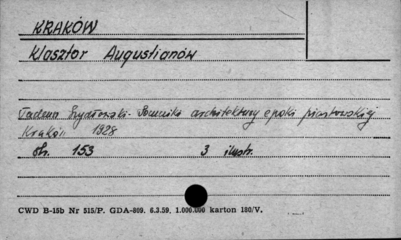 KRAKÓW
Klasztor Augustianów
Tadeusz Szydłowski - Pomniki architektury epoki piastowskiej
Kraków 1928
str. 153 3 ilustr.
CWD B-15b Nr 515/P. GDA-809. 6.3.59. 1.000.000 karton 180/V.